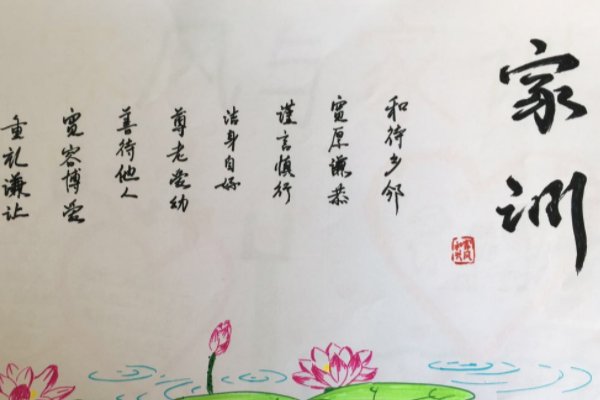 家训
和待乡邻
宽厚谦恭
谨言慎行
洁身自好
尊老爱幼
善待他人
宽容博爱
重礼谦让